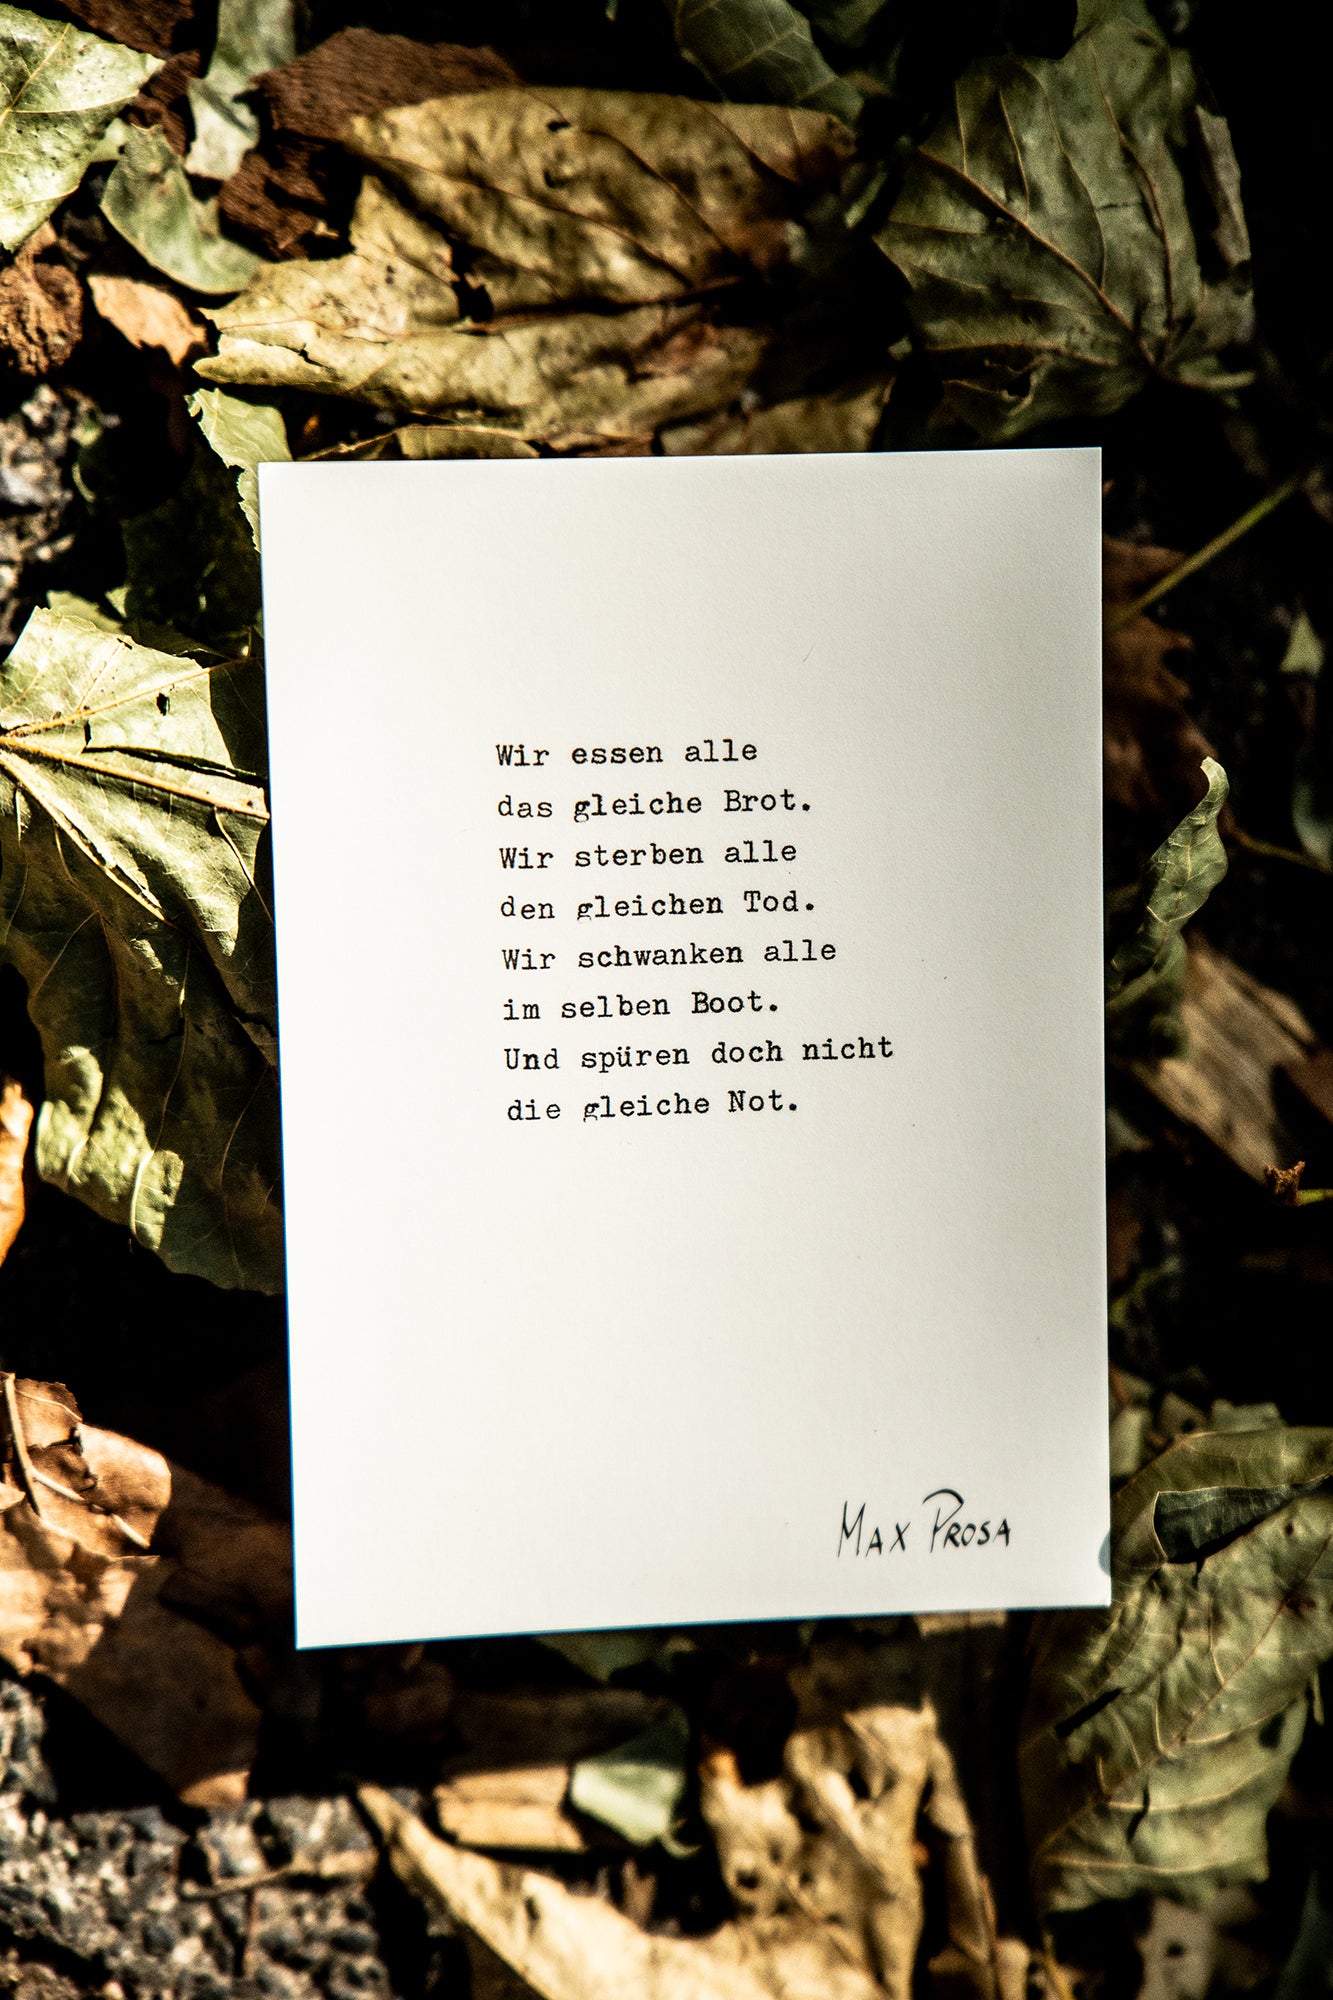 Wir essen alle
das gleiche Brot.
Wir sterben alle
den gleichen Tod.
Wir schwanken alle
im selben Boot.
Und spüren doch nicht
die gleiche Not.
MAX PROSA